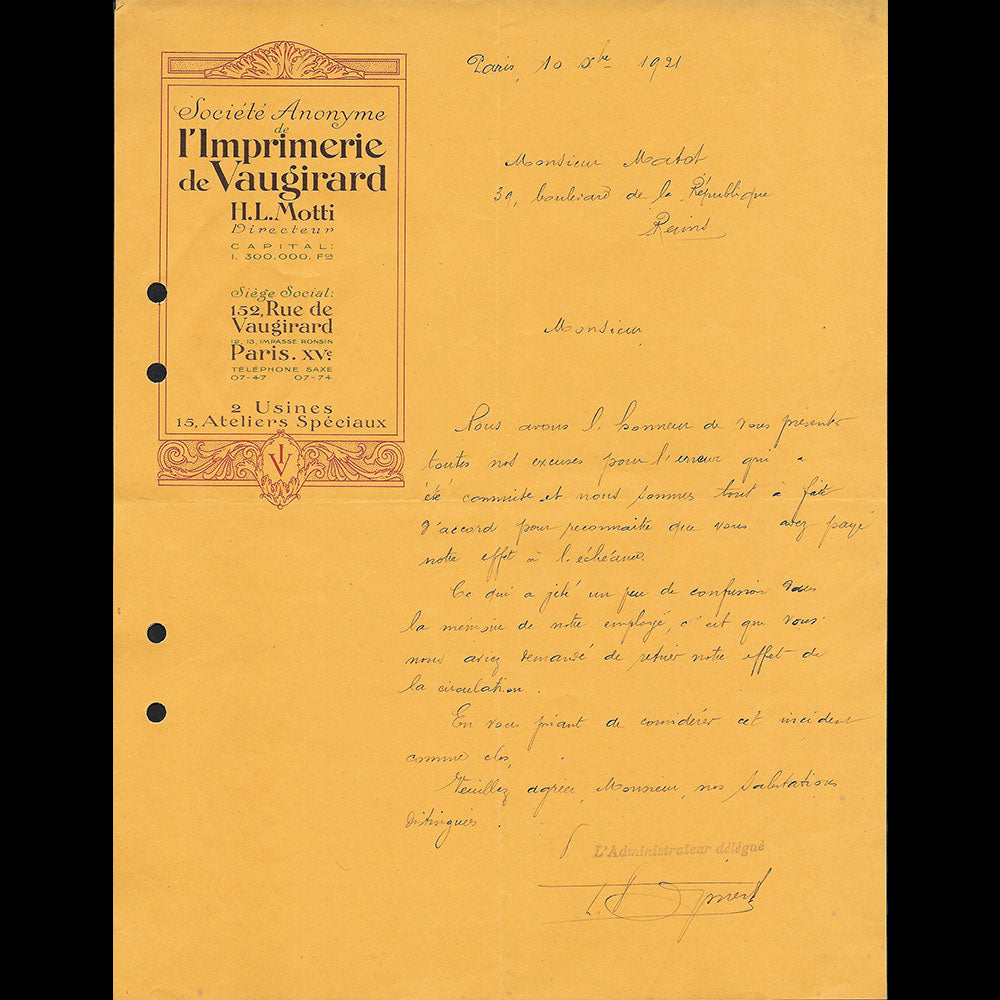 Société Anonyme
de
l'Imprimerie
de Vaugirard
H.L. Motti
Directeur
CAPITAL:
1.300.000. Fcs
Siège Social:
152, Rue de
Vaugirard
12, 13, IMPASSE RONSIN
Paris. XVe
TÉLÉPHONE SAXE
07-47 07-74
2 Usines
15, Ateliers Spéciaux
IV
Paris, 10 Xbre 1921
Monsieur Matot
39, boulevard de la République
Reims
Monsieur,
Nous avons l'honneur de vous présenter
toutes nos excuses pour l'erreur qui a
été commise et nous sommes tout à fait
d'accord pour reconnaître que vous avez payé
notre effet à l'échéance.
Ce qui a jeté un peu de confusion dans
la mémoire de notre employé, c'est que vous
nous aviez demandé de retirer notre effet de
la circulation.
En vous priant de considérer cet incident
comme clos,
Veuillez agréer, Monsieur, nos salutations
distinguées.
L'Administrateur délégué